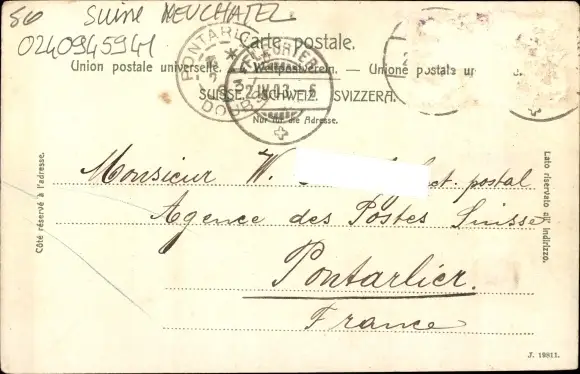 50 Suine NEUCHATEL
0240945941
Carte postale.
Union postale universelle. — Weltpostverein. — Unione postale
SUISSE. SCHWEIZ. SVIZZERA.
Nur für die Adresse.
PONTARLIER
DOUBS
22.IV.03. – 6
Côté réservé à l'adresse.
Lato riservato all' indirizzo.
Monsieur W. postal
Agence des Postes Suisse
Pontarlier.
France
J. 19811.